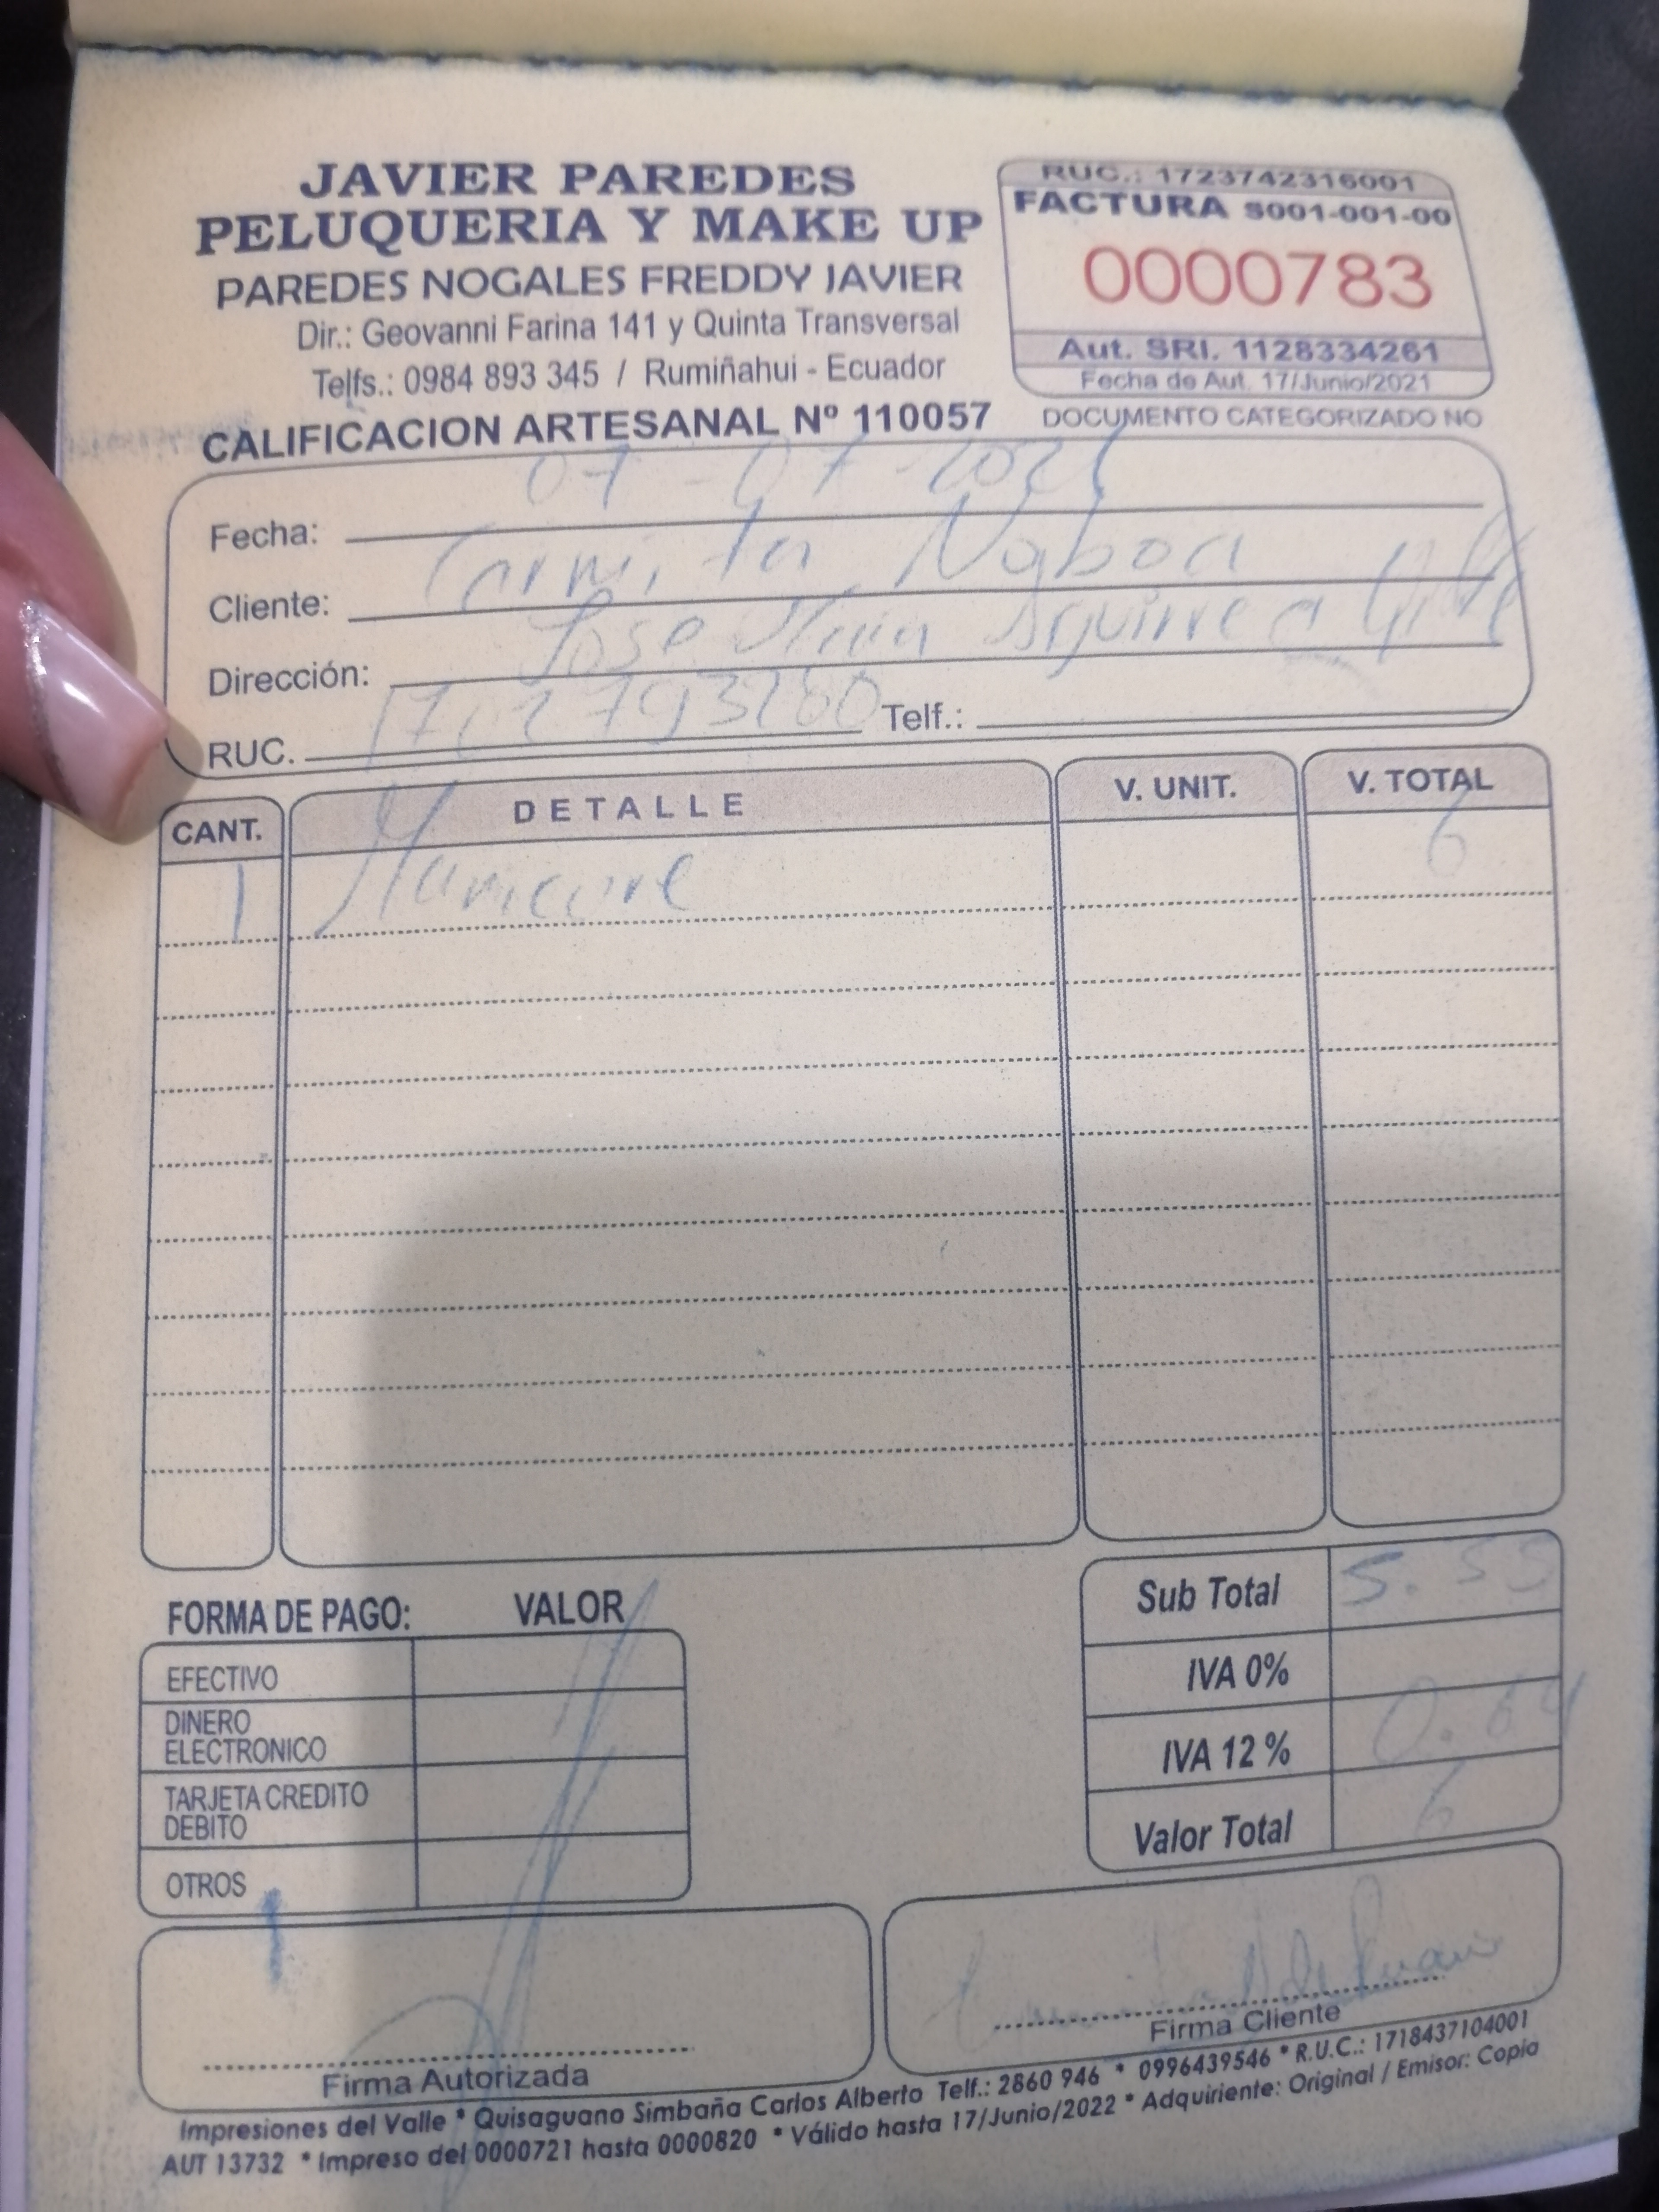 JAVIER PAREDES
PELUQUERIA Y MAKE UP
PAREDES NOGALES FREDDY JAVIER
Dir.: Geovanni Farina 141 y Quinta Transversal
Telfs.: 0984 893 345 / Rumiñahui - Ecuador
CALIFICACION ARTESANAL Nº 110057
RUC.: 1723742316001
FACTURA S001-001-00
0000783
Aut. SRI. 1128334261
Fecha de Aut. 17/Junio/2021
DOCUMENTO CATEGORIZADO NO
Fecha: 07-07-2021
Cliente: Carmita Noboa
Dirección: Jose
RUC. Telf.:
CANT. DETALLE V. UNIT. V. TOTAL
1 Manicure 6
FORMA DE PAGO: VALOR
EFECTIVO
DINERO
ELECTRONICO
TARJETA CREDITO
DEBITO
OTROS
Sub Total 5.
IVA 0%
IVA 12 % 0.64
Valor Total 6
Firma Autorizada
Firma Cliente
Impresiones del Valle * Quisaguano Simbaña Carlos Alberto Telf.: 2860 946 * 0996439546 * R.U.C.: 1718437104001
AUT 13732 * Impreso del 0000721 hasta 0000820 * Válido hasta 17/Junio/2022 * Adquiriente: Original / Emisor: Copia